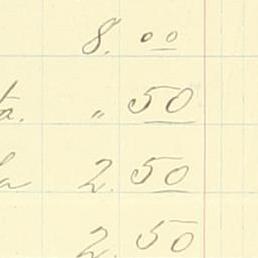 8. 00
ta. " 50
2. 50
2. 50